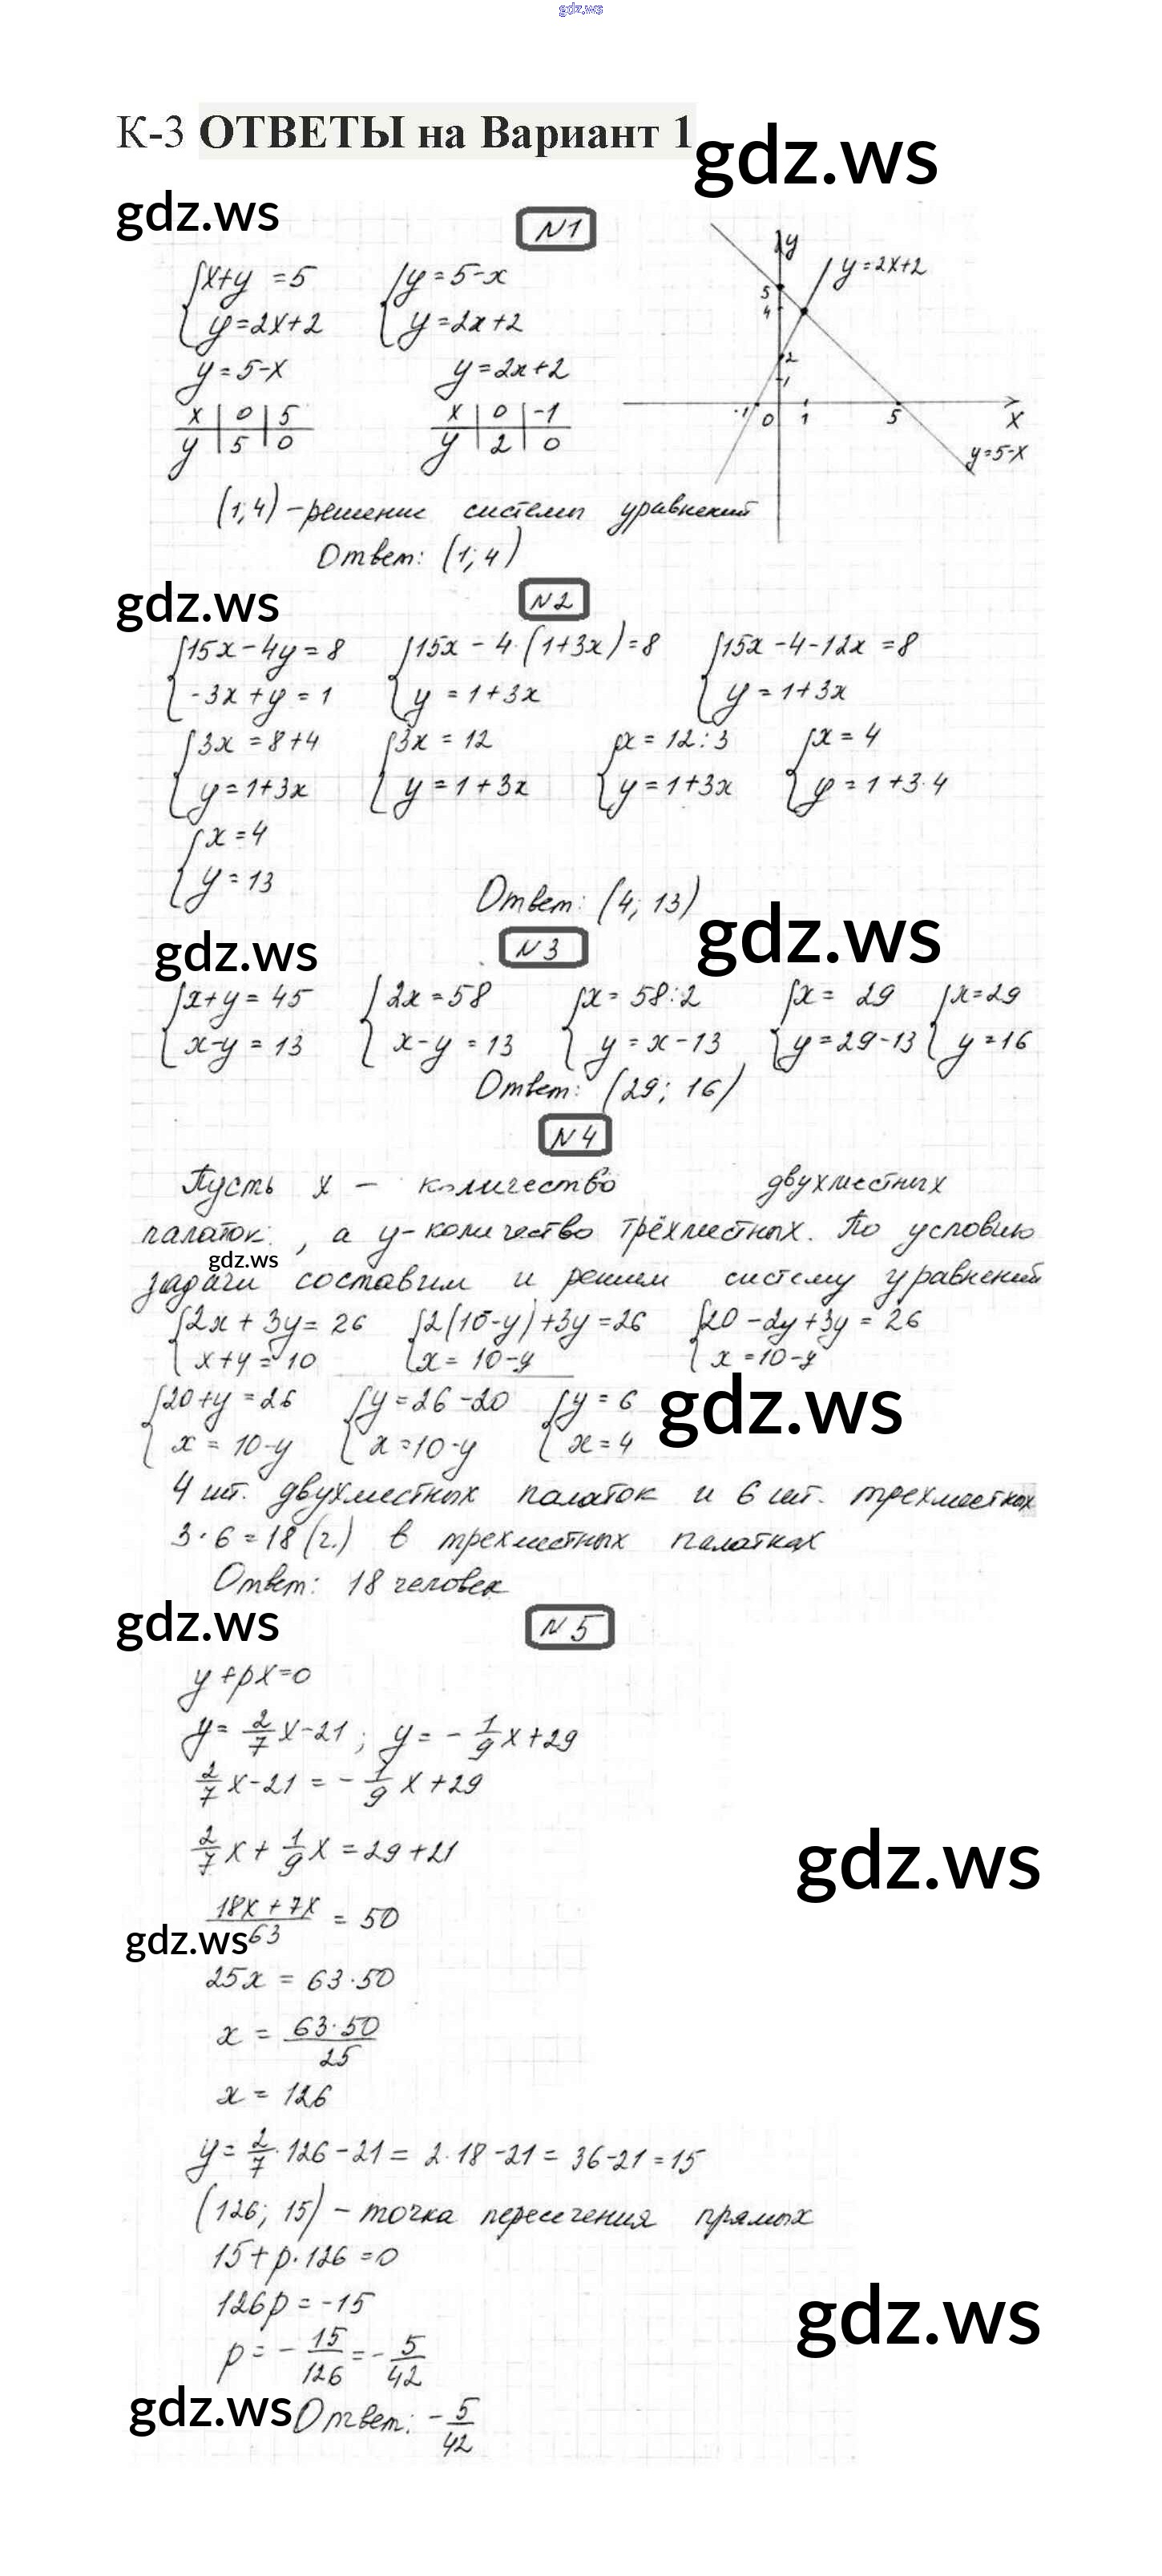 gdz.ws
К-3 ОТВЕТЫ на Вариант 1
gdz.ws
gdz.ws
N1
{x+y = 5   {y = 5-x
y=2x+2   y = 2x+2
y = 5-x   y = 2x+2
x | 0 | 5   x | 0 | -1
y | 5 | 0   y | 2 | 0
y
y=2x+2
5
4
2
1
-1 0 1 5 x
y=5-x
(1;4) - решение системы уравнений
Ответ: (1; 4)
gdz.ws
N2
{15x-4y = 8   {15x - 4·(1+3x) = 8   {15x - 4-12x = 8
-3x+y = 1   y = 1+3x   y = 1+3x
{3x = 8+4   {3x = 12   {x = 12:3   {x = 4
y = 1+3x   y = 1+3x   y = 1+3x   y = 1+3·4
{x = 4
y = 13
Ответ: (4; 13)
gdz.ws
gdz.ws
N3
{x+y = 45   {2x = 58   {x = 58:2   {x = 29   {x=29
x-y = 13   x-y = 13   y = x-13   y = 29-13   y = 16
Ответ: (29; 16)
N4
Пусть x - количество двухместных
палаток, а y-количество трёхместных. По условию
gdz.ws
задачи составим и решим систему уравнений
{2x + 3y = 26   {2(10-y)+3y = 26   {20-2y+3y = 26
x+y = 10   x = 10-y   x = 10-y
{20+y = 26   {y = 26-20   {y = 6
x = 10-y   x = 10-y   x = 4
gdz.ws
4 шт. двухместных палаток и 6 шт. трехместных
3·6 = 18 (ч.) в трехместных палатках
Ответ: 18 человек
gdz.ws
N5
y+px=0
y = 2/7 x-21 ; y = - 1/9 x+29
2/7 x-21 = - 1/9 x+29
2/7 x + 1/9 x = 29+21
gdz.ws
(18x+7x)/63 = 50
gdz.ws
25x = 63·50
x = (63·50)/25
x = 126
y = 2/7 ·126-21 = 2·18-21 = 36-21 = 15
(126; 15) - точка пересечения прямых
15+p·126 = 0
126p = -15
gdz.ws
p = - 15/126 = - 5/42
gdz.ws
Ответ: - 5/42